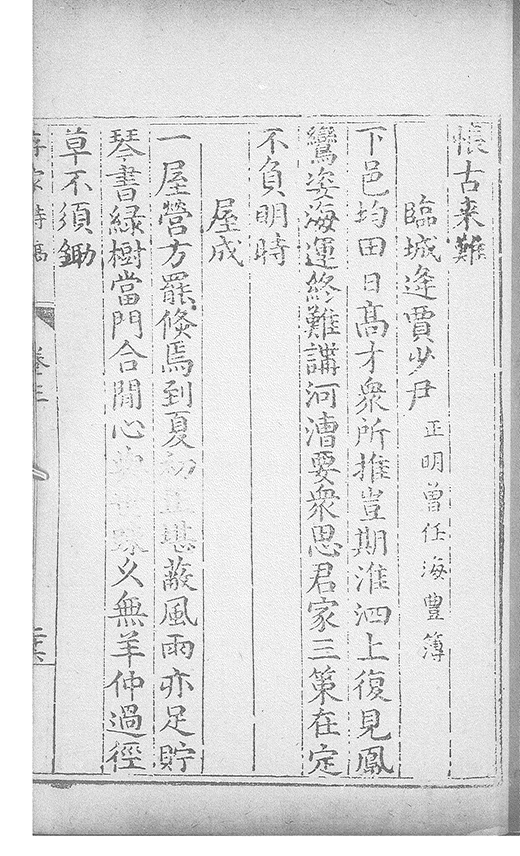 悵古来難
臨城逢賈少尹 正明曾任海豊簿
下邑均田日髙才衆所推豈期淮泗上復見鳳
鸞姿海運終難講河漕要衆思君家三策在定
不負明時
屋成
一屋營方罷倐焉到夏初正堪蔽風雨亦足貯
琴書緑樹當門合閒心踈久無羊仲過徑
草不須鋤
卷三